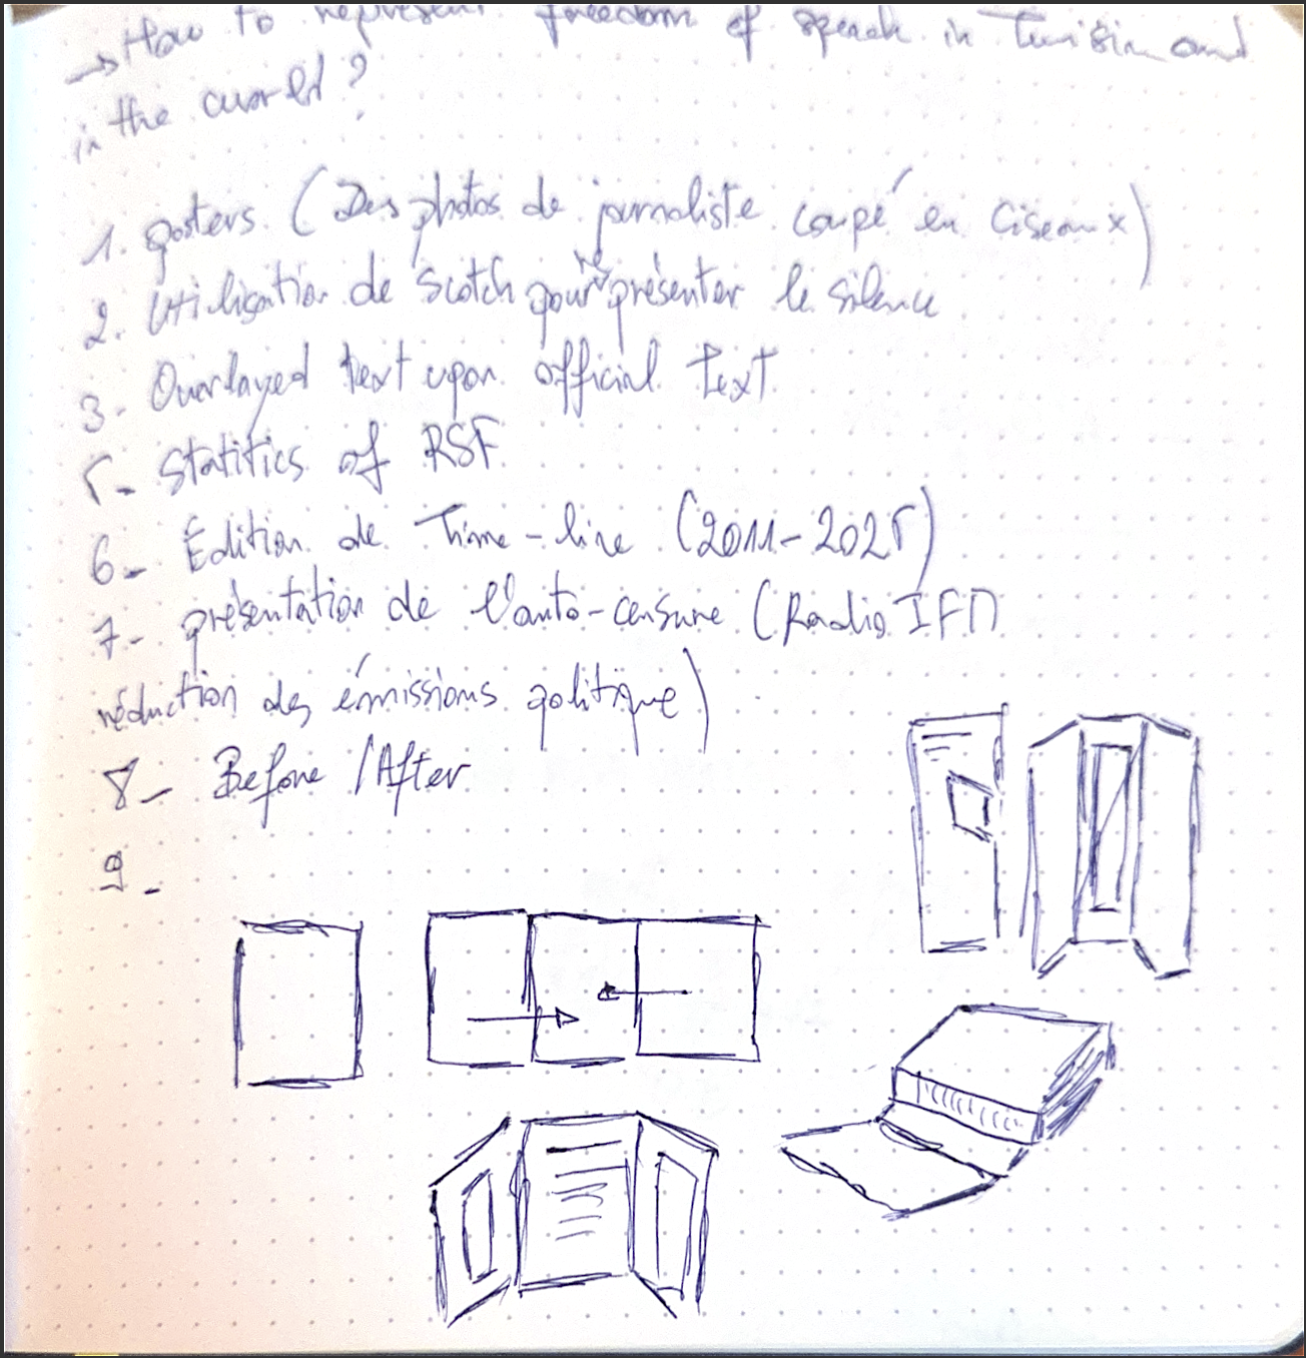 → How to represent freedom of speach in Tunisia and
in the world ?
1. posters (Des photos de journaliste coupé en ciseaux)
2. Utilisation de Scotch pour représenter le silence
3- Overlayed text upon official text
5- Statitics of RSF
6- Édition de Time-line (2011-2025)
7- présentation de l'auto-censure (Radio IFM
réduction des émissions politique)
8- Before / After
9-